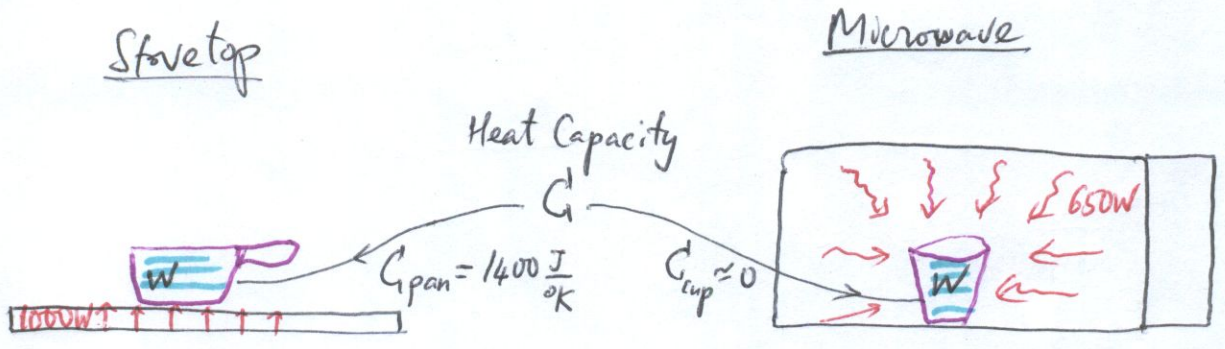 Stovetop
Microwave
Heat Capacity
C
650W
C_pan = 1400 J/°K
C_cup ≈ 0
W
W
1000W